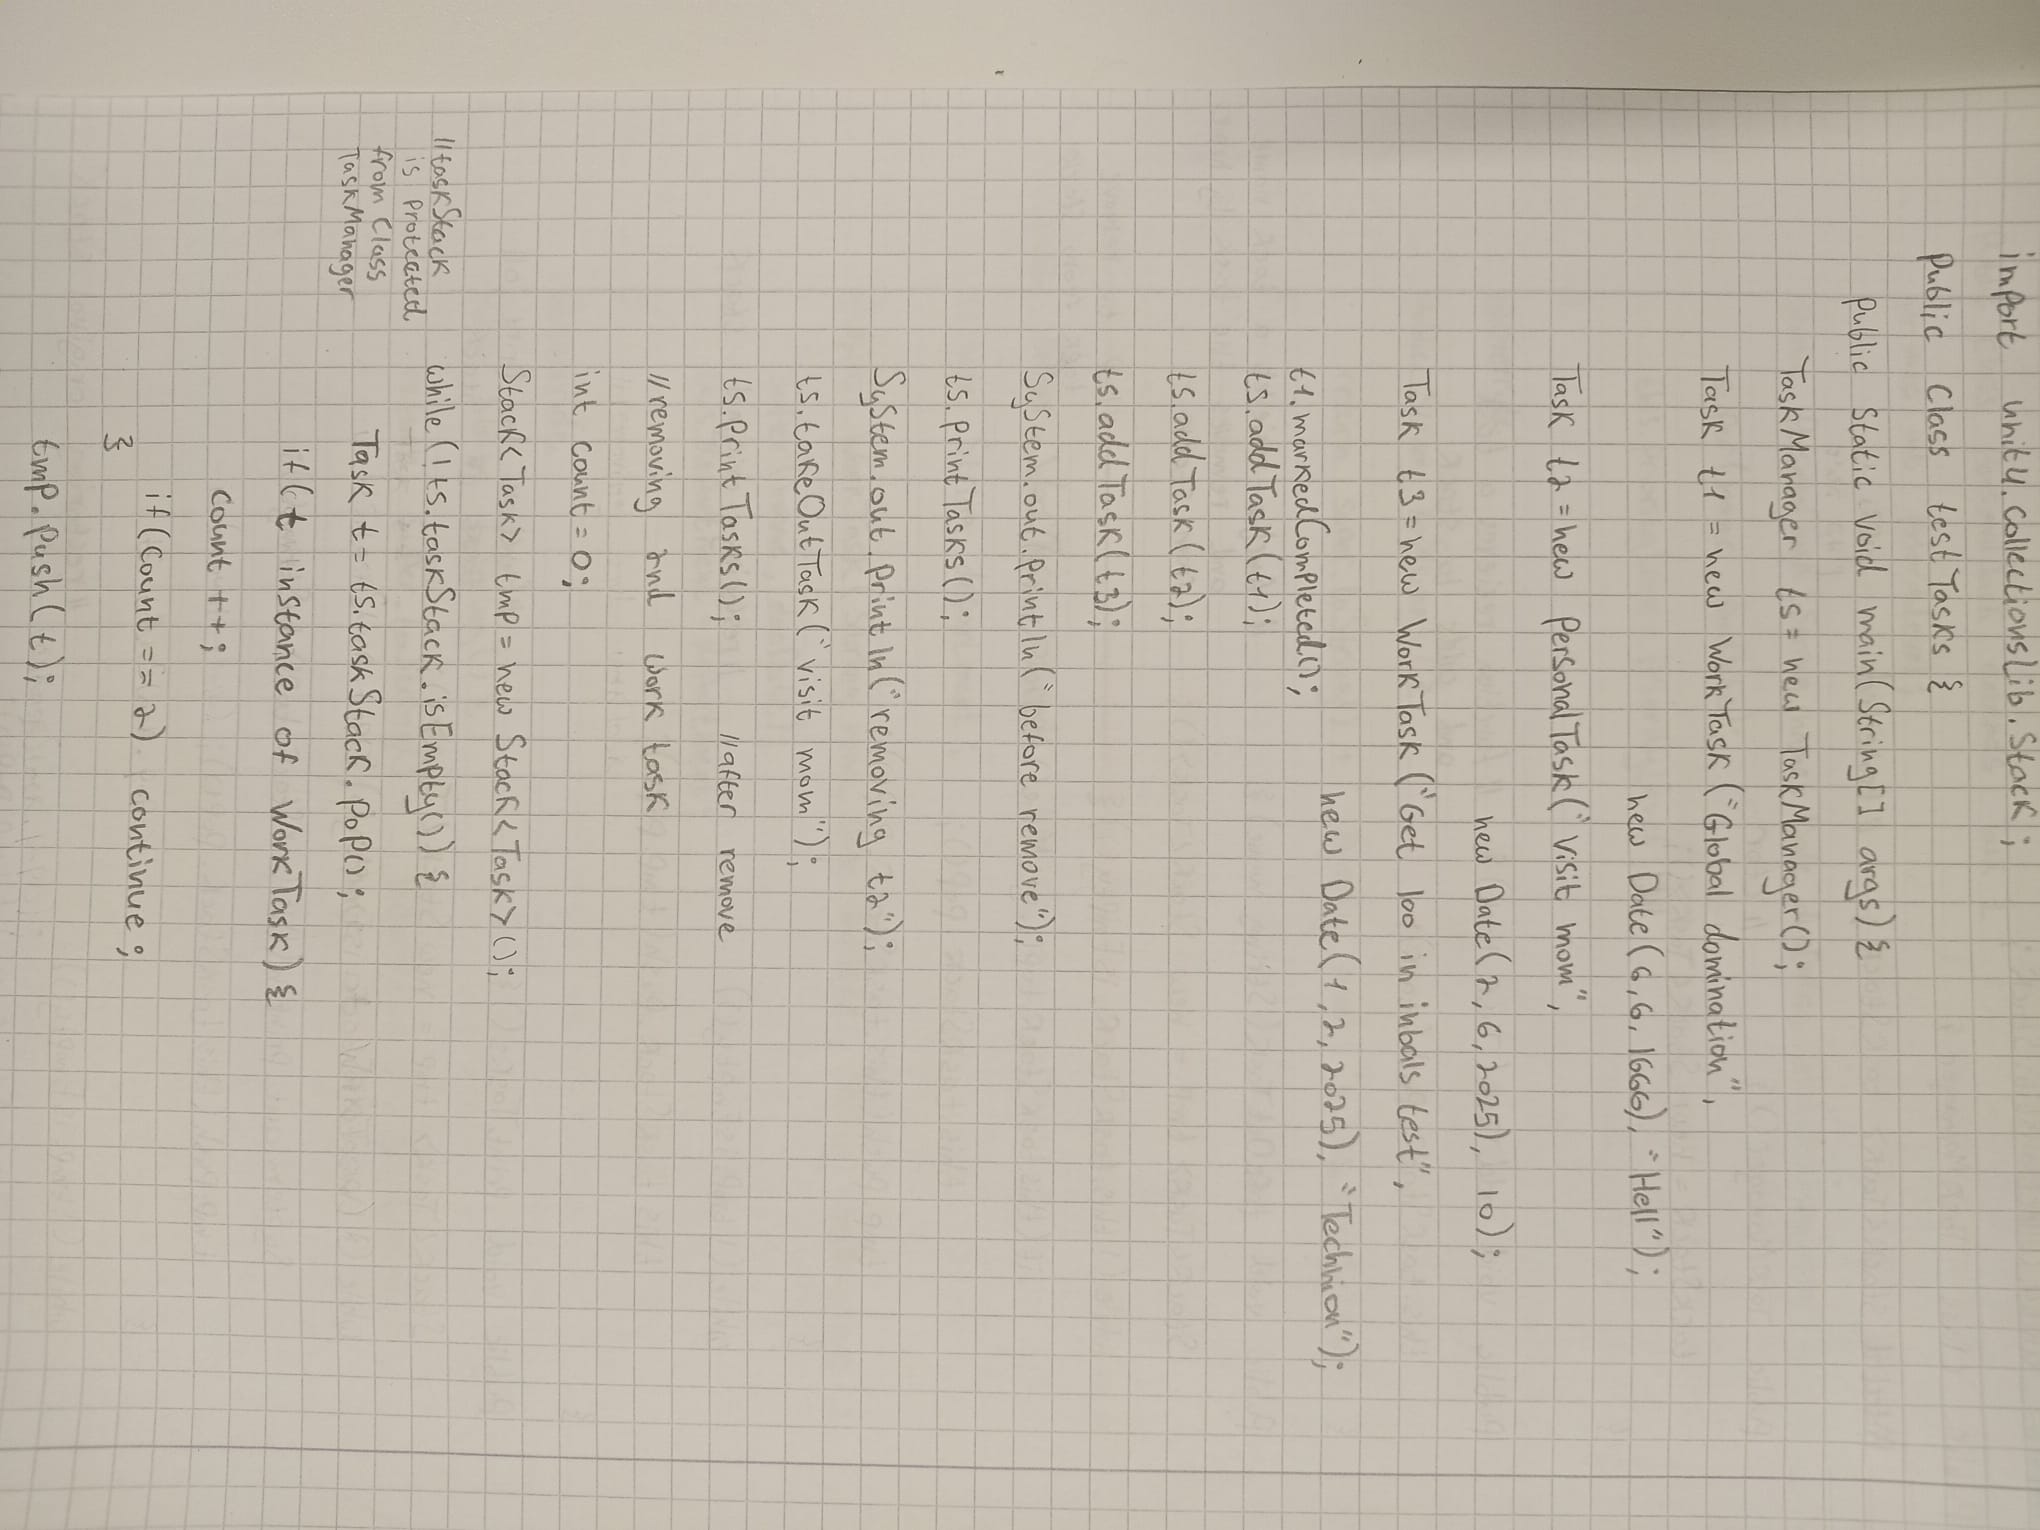 import unit4.collectionsLib.Stack;
public class testTasks {
public static void main(String[] args) {
TaskManager ts = new TaskManager();
Task t1 = new WorkTask ("Global domination",
new Date(6,6,1666), "Hell");
Task t2 = new PersonalTask("visit mom",
new Date(2,6,2025), 10);
Task t3 = new WorkTask ("Get 100 in inbals test",
new Date(1,2,2025), "Technion");
t1.markedCompleted();
ts.addTask(t1);
ts.addTask(t2);
ts.addTask(t3);
System.out.println("before remove");
ts.printTasks();
System.out.println("removing t2");
ts.takeOutTask("visit mom");
ts.printTasks(); //after remove
//removing 2nd work task
int count = 0;
Stack<Task> tmp = new Stack<Task>();
while (!ts.taskStack.isEmpty()) {
//taskStack
is protected
from class
TaskManager
Task t = ts.taskStack.pop();
if(t instance of WorkTask) {
count ++;
if(count == 2) continue;
}
tmp.push(t);